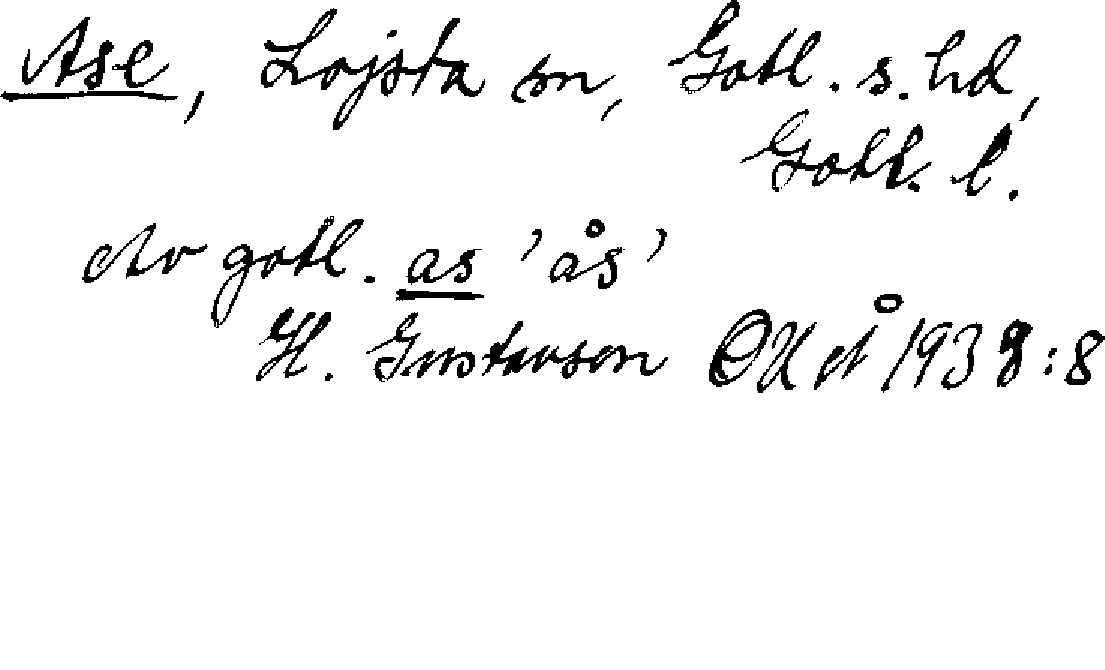 Ase, Lojsta sn, Gotl. s. hd,
Gotl. l.
Av gotl. as 'ås'
H. Gustavson OUÅ 1938:8